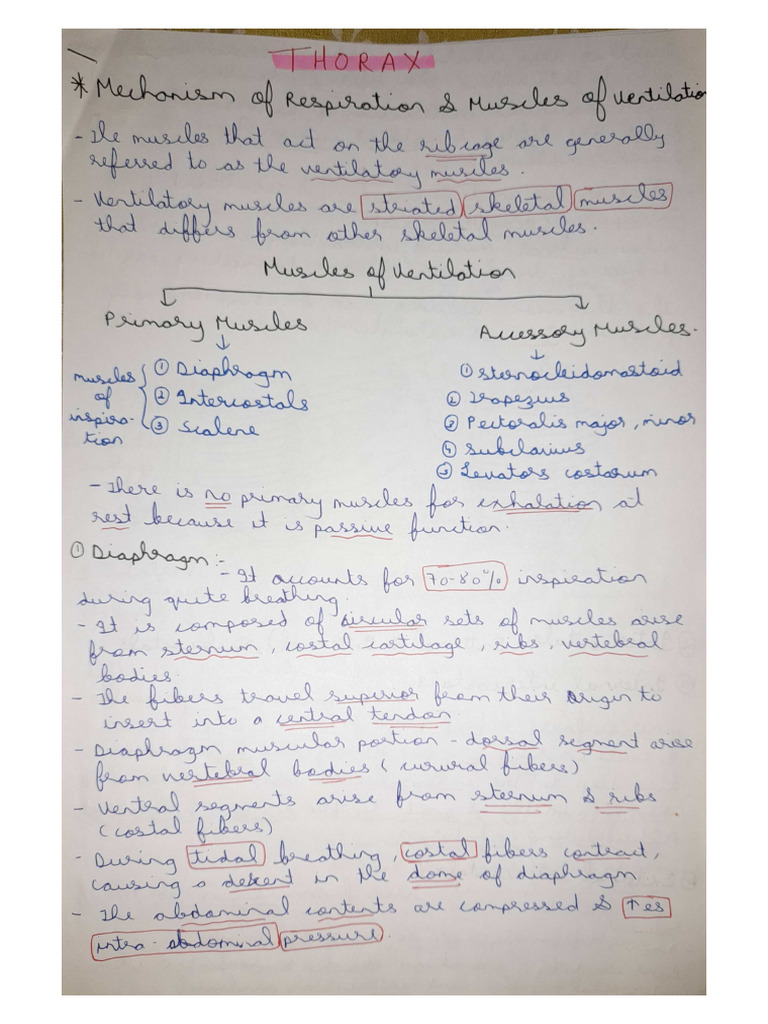 THORAX
* Mechanism of Respiration & Muscles of Ventilation
- The muscles that act on the ribcage are generally
referred to as the ventilatory muscles.
- Ventilatory muscles are striated skeletal muscles
that differs from other skeletal muscles.
Muscles of Ventilation
Primary Muscles
Accessory Muscles.
muscles of inspira-tion
① Diaphragm
② Intercostals
③ Scalene
① Sternocleidomastoid
② Trapezius
③ Pectoralis major, minor
④ Subclavius
⑤ Levators costarum
- There is no primary muscles for exhalation at
rest because it is passive function.
① Diaphragm :-
- It accounts for 70-80% inspiration
during quite breathing.
- It is composed of circular sets of muscles arise
from sternum, costal cartilage, ribs, vertebral
bodies.
- The fibers travel superior from their origin to
insert into a central tendon
- Diaphragm muscular portion - dorsal segment arise
from vertebral bodies (crurural fibers)
- Ventral segments arise from sternum & ribs
(costal fibers)
- During tidal breathing, costal fibers contract,
causing a descent in the dome of diaphragm
- The abdominal contents are compressed & ↑es
intra-abdominal pressure.